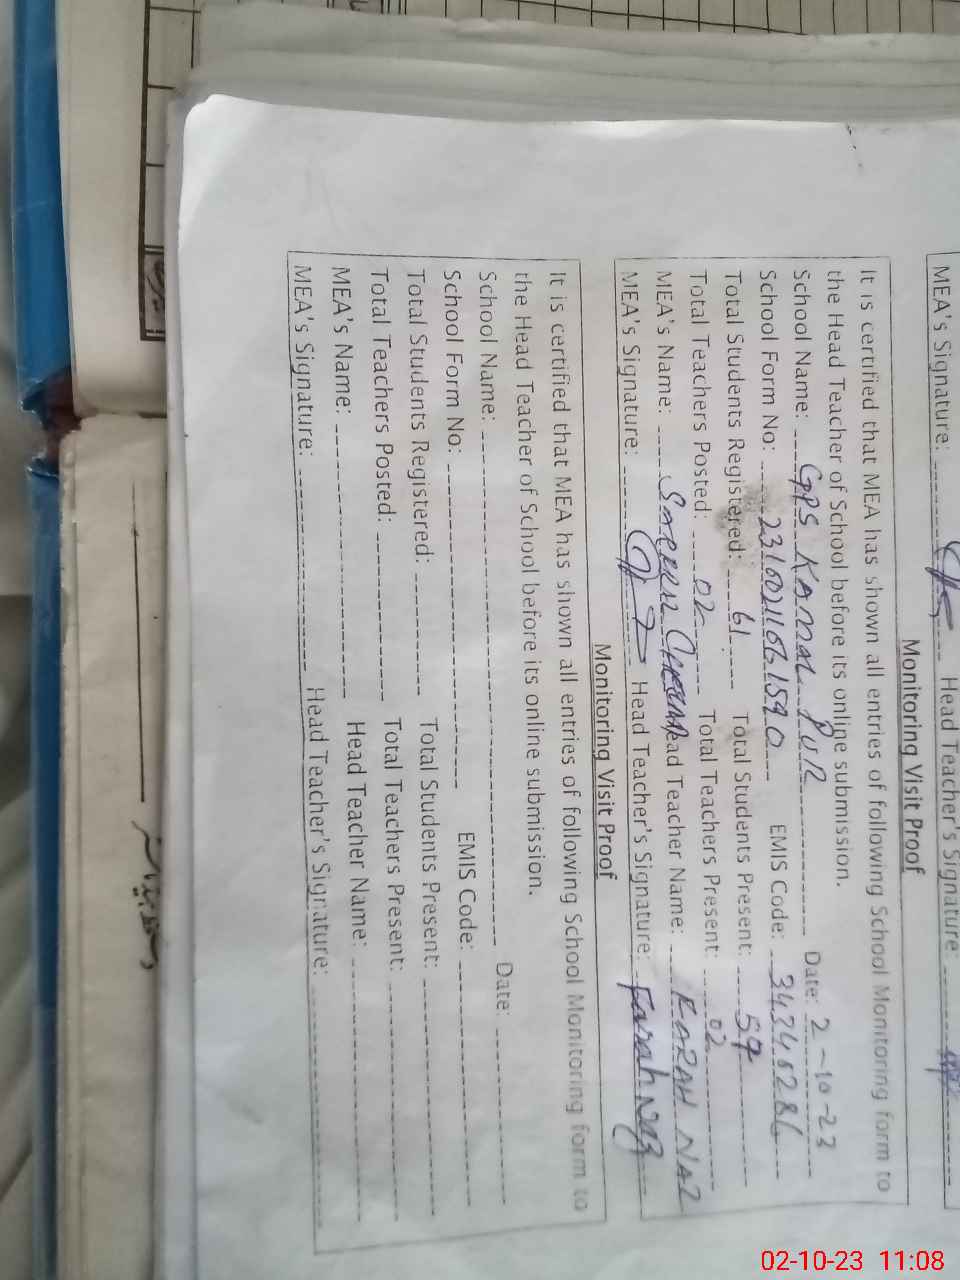 MEA's Signature: Head Teacher's Signature:
Monitoring Visit Proof
It is certified that MEA has shown all entries of following School Monitoring form to
the Head Teacher of School before its online submission.
School Name: GPS Kamal Pur Date: 2-10-23
School Form No: EMIS Code:
Total Students Registered: 61 Total Students Present:
Total Teachers Posted: 02 Total Teachers Present: 02
MEA's Name: Head Teacher Name: FARAH NAZ
MEA's Signature: Head Teacher's Signature: Farah Naz
Monitoring Visit Proof
It is certified that MEA has shown all entries of following School Monitoring form to
the Head Teacher of School before its online submission.
School Name: Date:
School Form No: EMIS Code:
Total Students Registered: Total Students Present:
Total Teachers Posted: Total Teachers Present:
MEA's Name: Head Teacher Name:
MEA's Signature: Head Teacher's Signature:
02-10-23 11:08